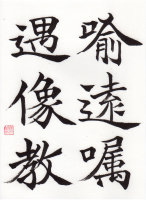 喻遠嘱
遇像教